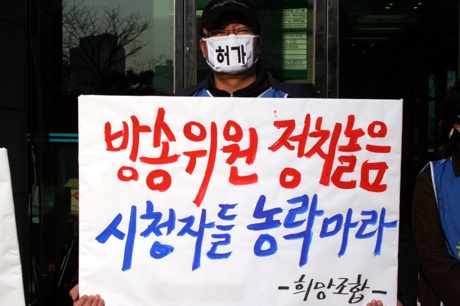 허가
방송위원 정치놀음
시청자들 농락마라
-희망조합-